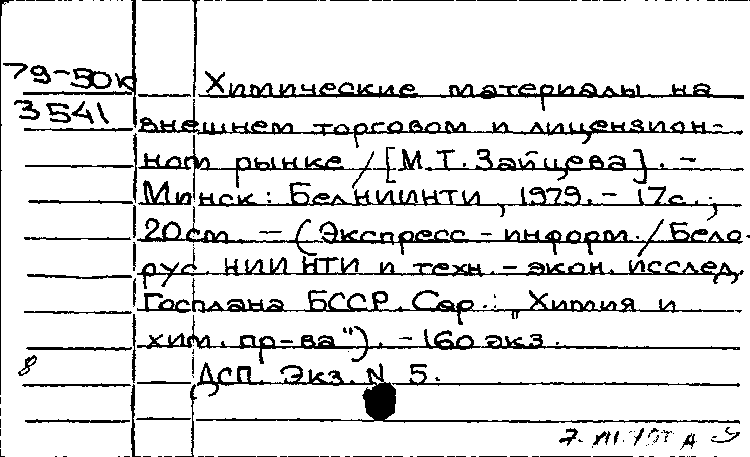 79-50к Химические материалы на
3541 внешнем торговом и лицензион-
ном рынке / [М.Т. Зайцева]. -
Минск: БелНИИНТИ, 1979. - 17с.;
20 см. - (Экспресс-информ. / Бело-
рус. НИИ НТИ и техн.-экон. исслед.
Госплана БССР. Сер.: "Химия и
хим. пр-ва"). - 160 экз.
8 ДСП. Экз. N 5.